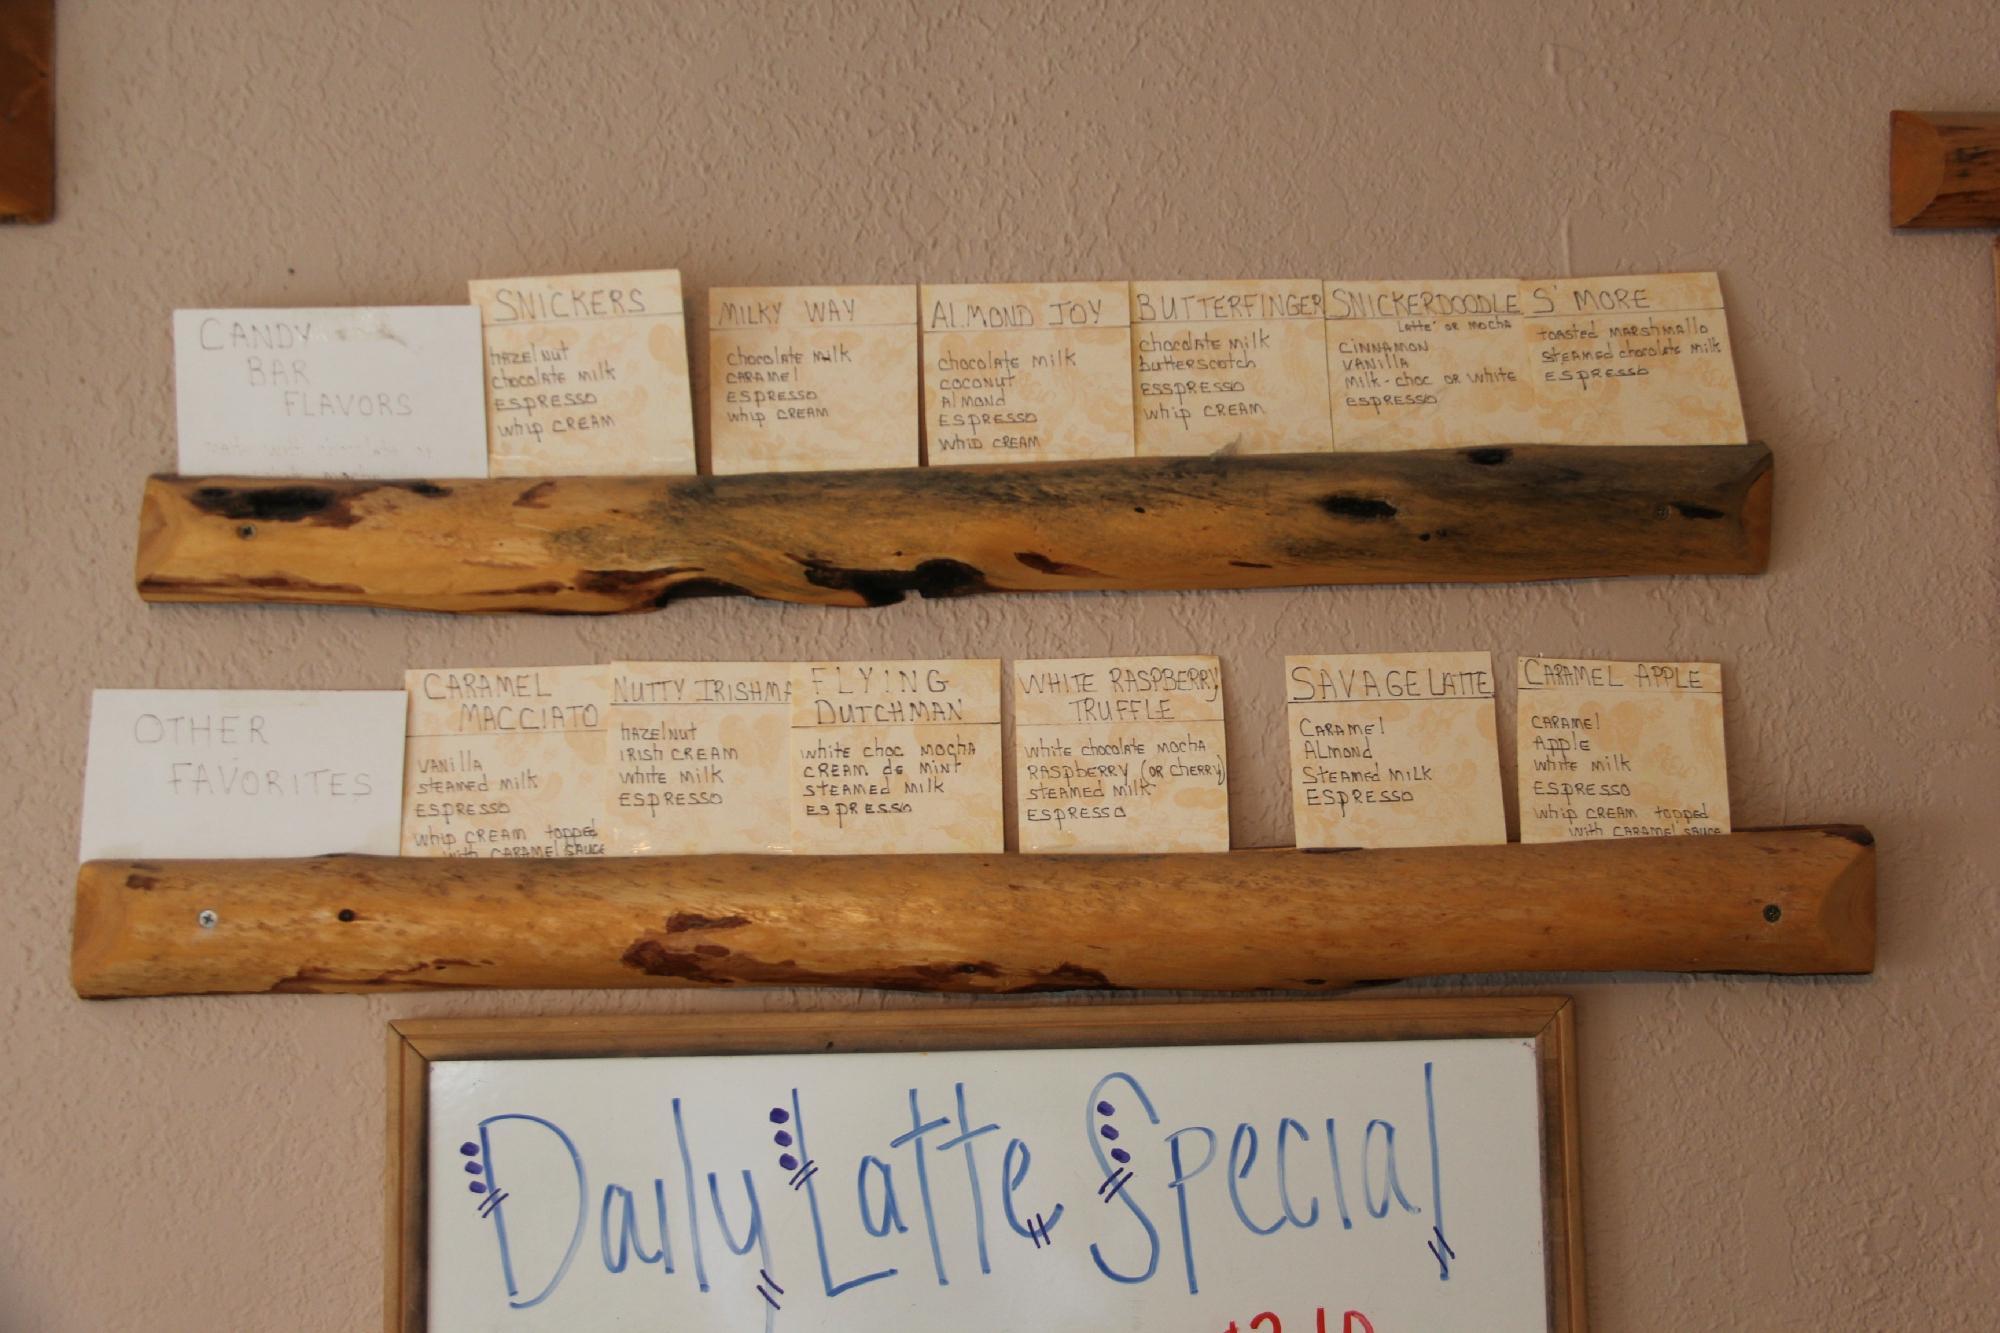 CANDY
BAR
FLAVORS
SNICKERS
hazelnut
chocolate milk
ESPRESSO
whip CREAM
MILKY WAY
chocolate milk
CARAMEL
ESPRESSO
whip CREAM
ALMOND JOY
chocolate milk
coconut
Almond
ESPRESSO
whip CREAM
BUTTERFINGER
chocolate milk
butterscotch
ESSPRESSO
whip CREAM
SNICKERDOODLE
Latte' OR MOCHA
CINNAMON
VANILLA
Milk-choc OR white
ESPRESSO
S'MORE
toasted MARShmallo
STEAMED chocolate milk
ESPRESSO
OTHER
FAVORITES
CARAMEL
MACCIATO
VANILLA
STEAMED milk
ESPRESSO
whip CREAM topped
with CARAMEL SAUCE
NUTTY IRISHMA
hazelnut
IRISH CREAM
white milk
ESPRESSO
FLYING
DUTCHMAN
white choc mocha
CREAM de MINT
STEAMED milk
ESPRESSO
WHITE RASPBERRY
TRUFFLE
white chocolate mocha
RASPBERRY (OR CHERRY)
STEAMED milk
ESPRESSO
SAVAGE LATTE
CARAMEL
ALMOND
STEAMED MILK
ESPRESSO
CARAMEL APPLE
CARAMEL
Apple
white milk
ESPRESSO
whip CREAM topped
with CARAMEL SAUCE
Daily Latte Special